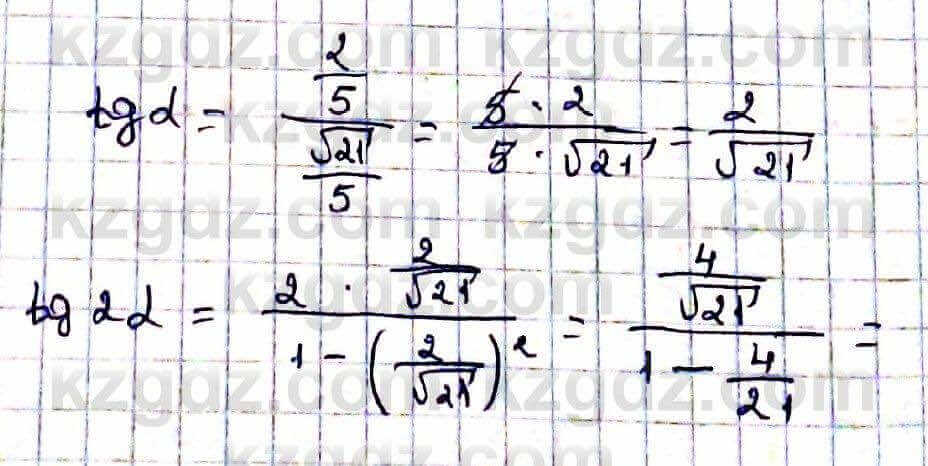 kzgdz.com kzgdz.com
tg α = (2/5)/(√21/5) = (5 · 2)/(5 · √21) = 2/√21
kzgdz.com kzgdz.com
tg 2α = (2 · 2/√21)/(1 − (2/√21)²) = (4/√21)/(1 − 4/21) =